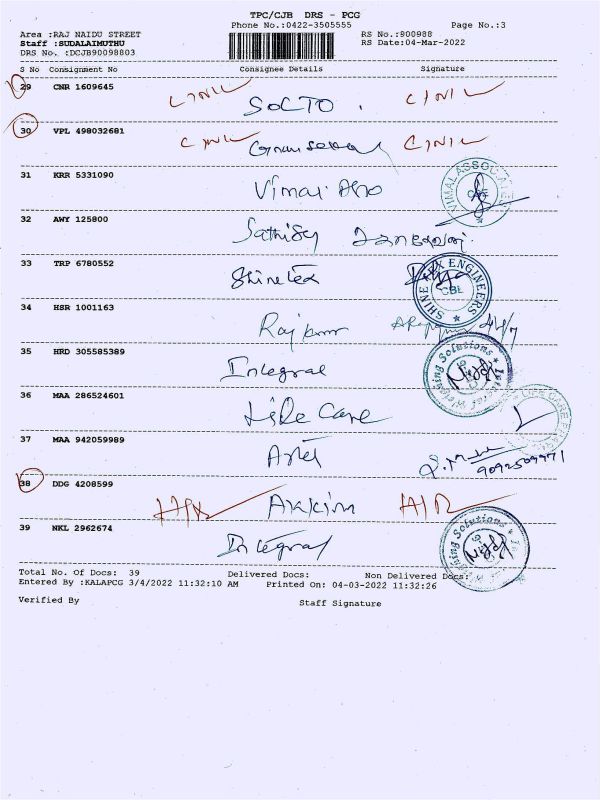 TPC/CJB DRS - PCG
Phone No.:0422-3505555 Page No.:3
Area :RAJ NAIDU STREET RS No.:900988
Staff :SUDALAIMUTHU RS Date:04-Mar-2022
DRS No. :DCJB90098803
S No Consignment No Consignee Details Signature
29 CNR 1609645
SOCTO
30 VPL 498032681
31 KRR 5331090
VIMAL ASSOCIATES
Vimal Asso
32 AWY 125800
Sathish
33 TRP 6780552
SHINE TEX ENGINEERS CBE
Shinetex
34 HSR 1001163
Rajkumar
35 HRD 305585389
Integral
Integral Weighing Solutions
36 MAA 286524601
Life Care
LIFE CARE
37 MAA 942059989
9092509971
38 DDG 4208599
39 NKL 2962674
Integral
Total No. Of Docs: 39 Delivered Docs: Non Delivered Docs:
Entered By :KALAPCG 3/4/2022 11:32:10 AM Printed On: 04-03-2022 11:32:26
Verified By Staff Signature